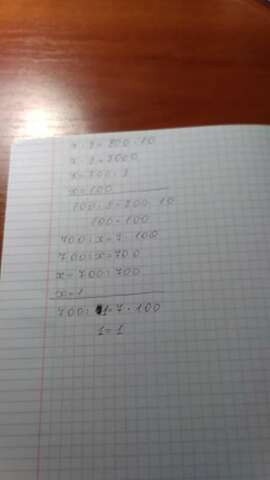 x · 2 = 200 · 10
x · 2 = 2000
x = 700 : 2
x = 100
100 : 2 = 200 : 10
100 = 100
700 : x = 7 · 100
700 : x = 700
x = 700 : 700
x = 1
700 : 1 = 7 · 100
1 = 1